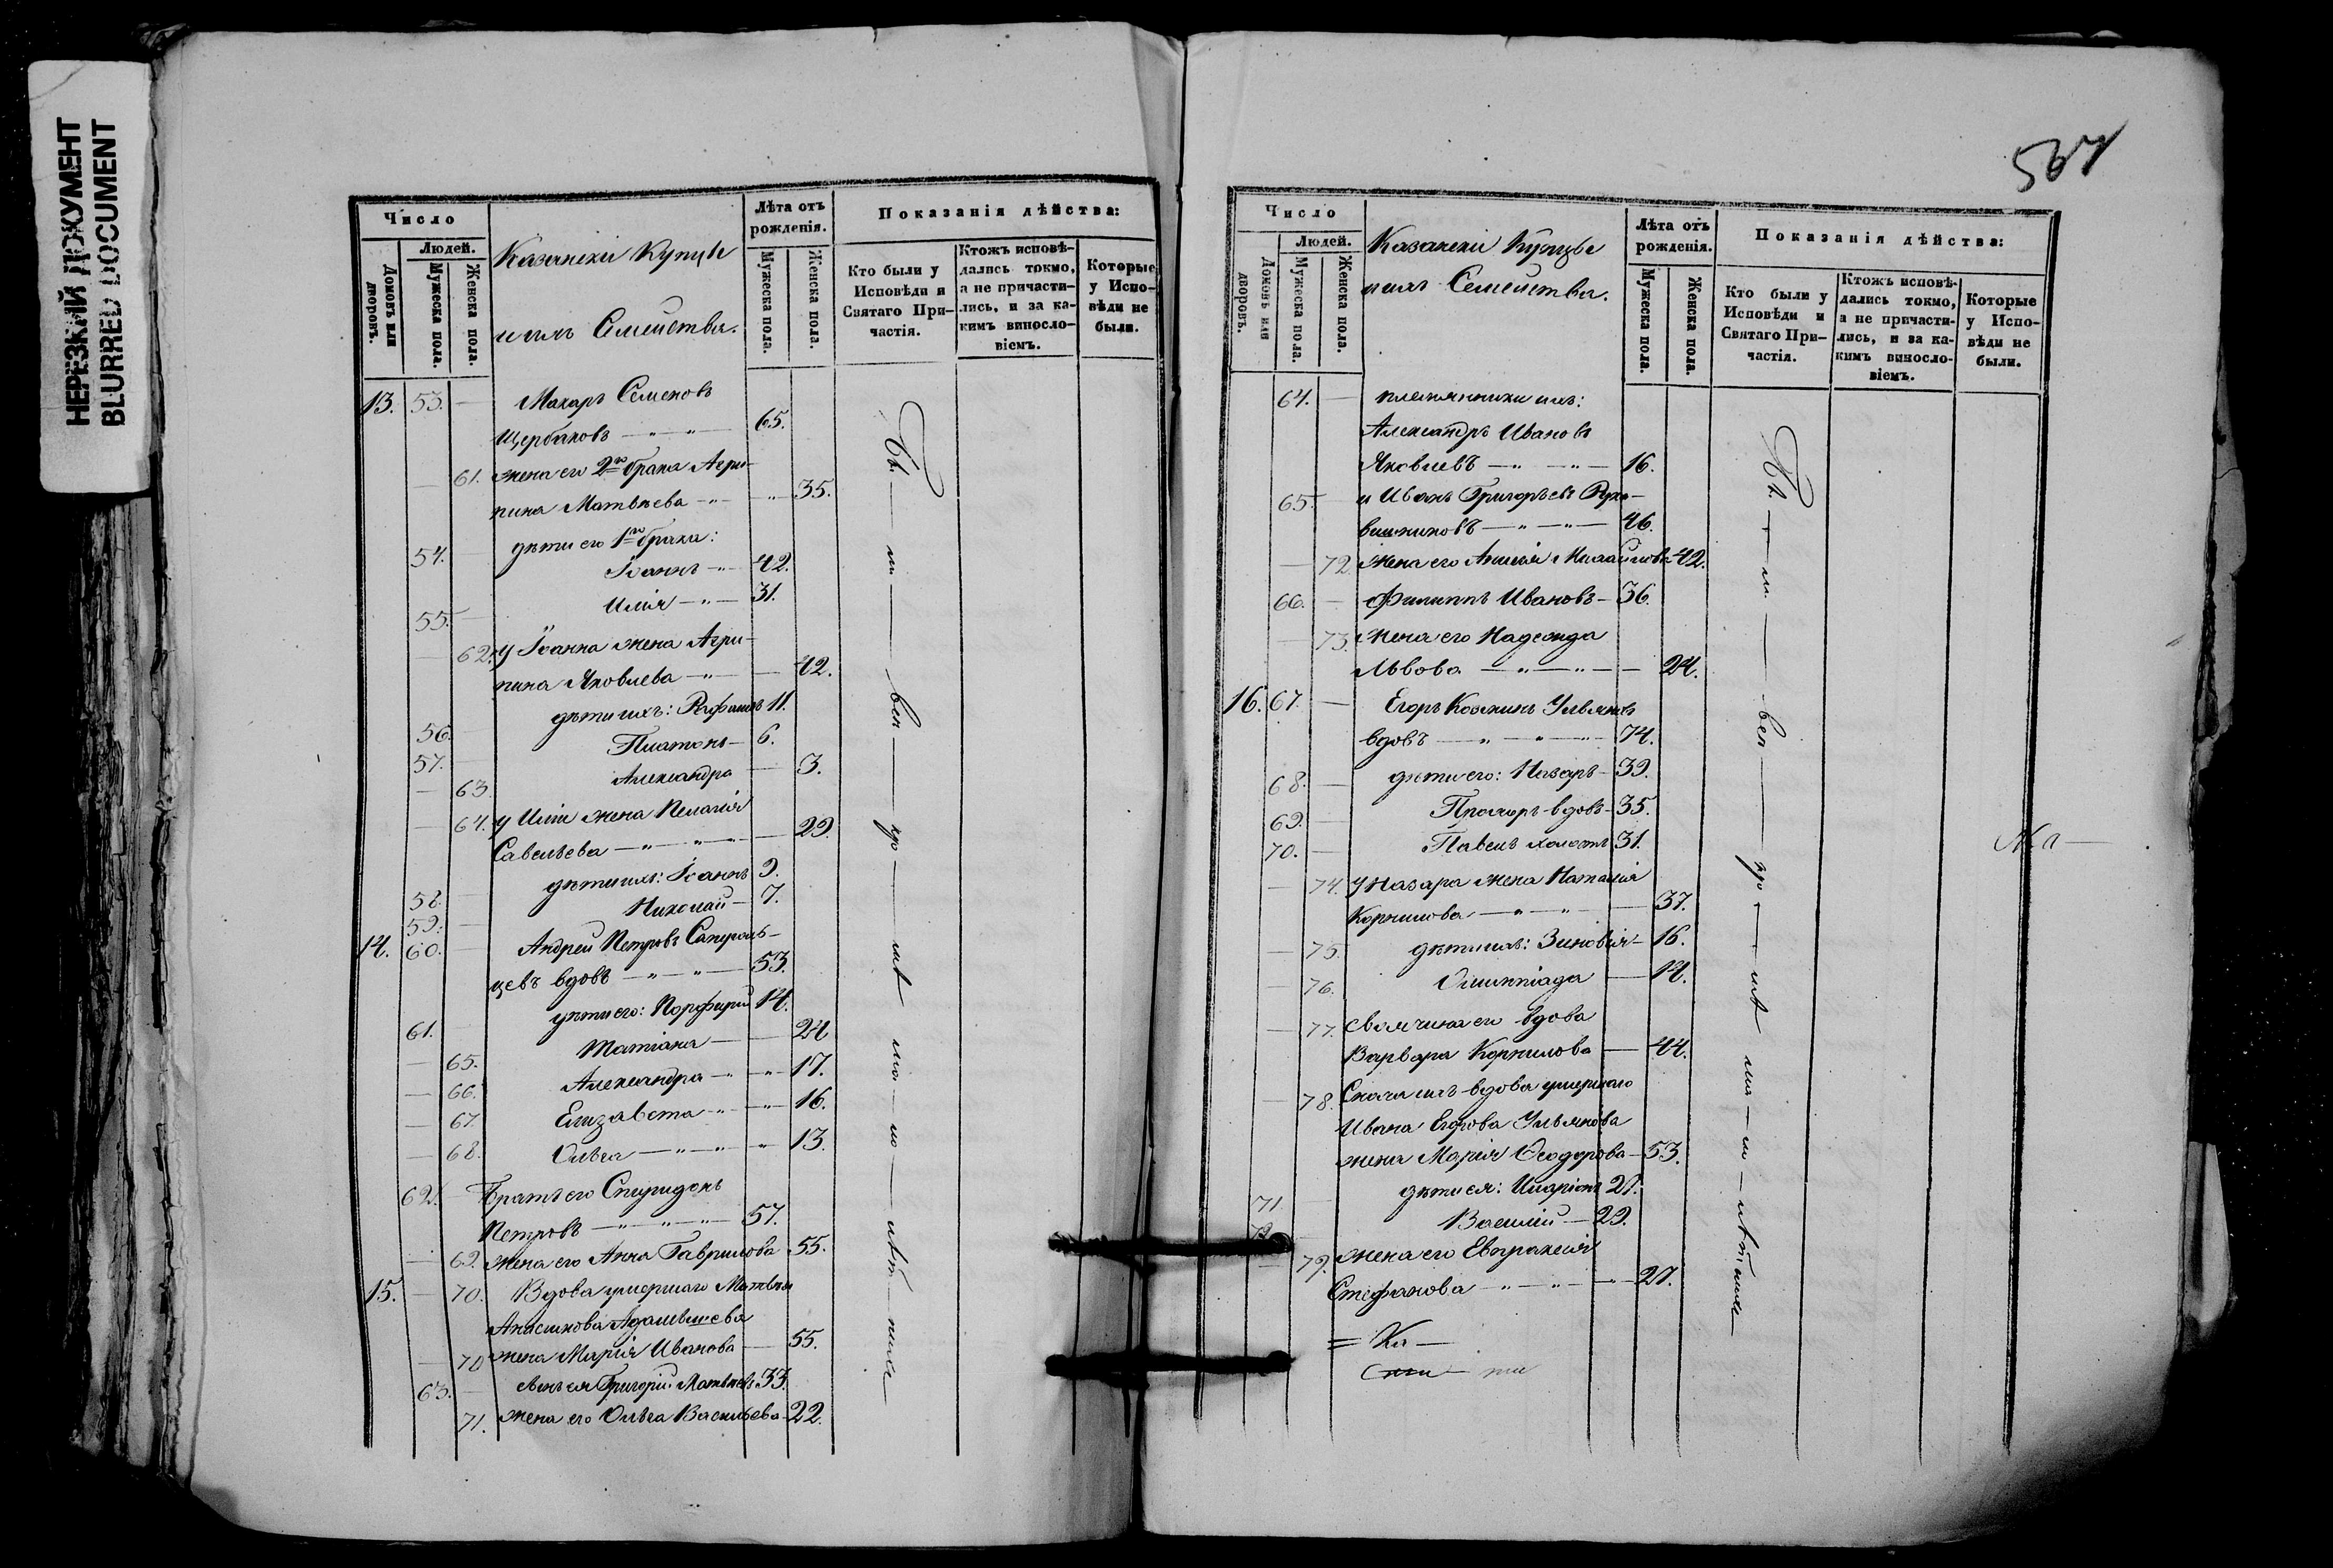 НЕРЕЗКИЙ ДОКУМЕНТ
BLURRED DOCUMENT
Число
Людей.
Домовъ или дворовъ.
Мужеска пола.
Женска пола.
Казанскіи Купцы
и ихъ Семейства.
Лѣта отъ рожденія.
Мужеска пола.
Женска пола.
Показанія дѣйства:
Кто были у Исповѣди и Святаго Причастія.
Ктожъ исповѣдались токмо, а не причастились, и за какимъ винословіемъ.
Которые у Исповѣди не были.
13. 53. — Макаръ Семеновъ
Щербаковъ — " — " — 65.
— 61. жена его 2го брака Агри-
пина Матвѣева — " — " — 35.
дѣти его 1го брака:
54. Іоаннъ — " — 42.
55. — Илія — " — 31.
— 62. у Іоанна жена Агри-
пина Яковлева — " — — 42.
56. дѣти ихъ: Рафаилъ 11.
57. — Платонъ — 6.
— 63. Александра — 3.
— 64. у Иліи жена Пелагія
Савельева — " — " — 29.
58. — дѣти ихъ: Іоаннъ 9.
59. — Николай — 7.
14. 60. — Андрей Петровъ
цевъ вдовъ — " — " — 53.
61. — дѣти его: Порфирій 14.
— 65. Татіана — — 24
— 66. Александра — " — " — 17.
— 67. Елизавета — " — " — 16.
— 68. Ольга — " — " — " — 13.
62. — Братъ его Спиридонъ
Петровъ — " — " — " — 57.
— 69. жена его Анна Гаврилова 55.
15. — 70. Вдова умершаго Матвѣя
жена Марія Иванова — 55.
— 70
63. — сынъ ея Григорій Матвѣевъ 33.
71. жена его Ольга Васильева — 22.
Бы — ли — вси — при — — но
Число
Людей.
Домовъ или дворовъ.
Мужеска пола.
Женска пола.
Казанскіи Купцы
и ихъ Семейства.
Лѣта отъ рожденія.
Мужеска пола.
Женска пола.
Показанія дѣйства:
Кто были у Исповѣди и Святаго Причастія.
Ктожъ исповѣдались токмо, а не причастились, и за какимъ винословіемъ.
Которые у Исповѣди не были.
64. — племянники ихъ:
Александръ Ивановъ
Яковлевъ — " — " — 16.
65. — и Иванъ Григорьевъ Рука-
вишниковъ — " — " — 46.
— 72. жена его Михайлова 42.
66. — Филиппъ Ивановъ — 36.
— 73. жена его Надежда
Львова — " — " — — 24.
16. 67. — Егоръ Козминъ Ульяновъ
вдовъ — " — " — " — 74.
68. — дѣти его: Назаръ — 39.
69. — Прохоръ вдовъ — 35.
70. — Павелъ холостъ 31.
— 74. у Назара жена Наталія
Корнилова — " — " — — 37.
— 75. дѣти ихъ: Зиновія — 16.
— 76. Олимпіада — 14.
— 77. его вдова
Варвара Корнилова — 44.
— 78. Сноха ихъ вдова умершаго
Ивана Егорова Ульянова
жена Марія Ѳеодорова — 53.
71 — дѣти ея: Иларіонъ 27.
72 Василій — 29.
— 79. жена его Евпраксія
Стефанова — " — " — " — 27.
= Ка —